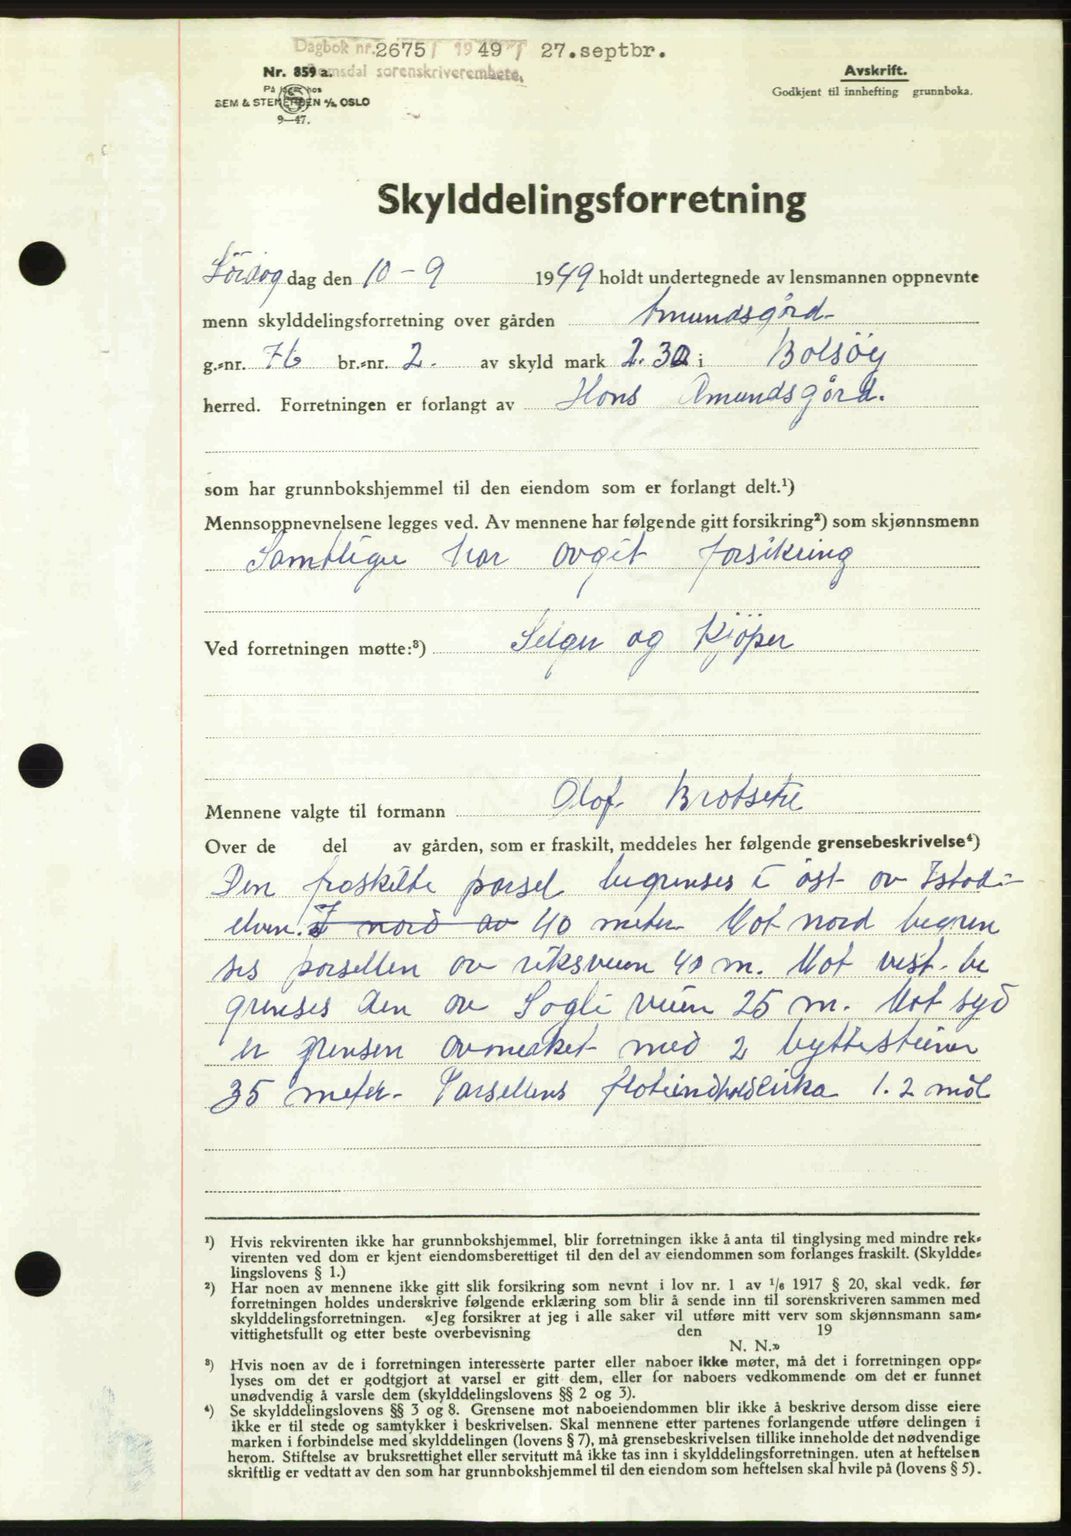 Dagbok nr. 2675 / 1949 / 27. septbr.
Romsdal sorenskriverembete.
Nr. 859 a.
På lager hos
SEM & STENERSEN A/S, OSLO
9—47.
Avskrift.
Godkjent til innhefting grunnboka.
Skylddelingsforretning
Lördag dag den 10 - 9 1949 holdt undertegnede av lensmannen oppnevnte
menn skylddelingsforretning over gården Amundsgård
g.=nr. 76 br.=nr. 2. av skyld mark 2.32 i Bolsöy
herred. Forretningen er forlangt av Hans Amundsgård.
som har grunnbokshjemmel til den eiendom som er forlangt delt.¹)
Mennsoppnevnelsene legges ved. Av mennene har følgende gitt forsikring²) som skjønnsmenn
Samtlige har avgit forsikring
Ved forretningen møtte:³) Selger og Kjöper
Mennene valgte til formann Olaf Brotsete
Over de del av gården, som er fraskilt, meddeles her følgende grensebeskrivelse⁴)
Den fraskilte parsel begrenses i öst av Istad-
elven. I nord av 40 meter Mot nord begren
ses parsellen av riksveien 40 m. Mot vest be
grenses den av Sogli veien 25 m. Mot syd
er grensen avmerket med 2 byttesteiner
35 meter. Parsellens flateindhold cirka 1.2 mål
¹) Hvis rekvirenten ikke har grunnbokshjemmel, blir forretningen ikke å anta til tinglysing med mindre rek=
virenten ved dom er kjent eiendomsberettiget til den del av eiendommen som forlanges fraskilt. (Skyldde=
lingslovens § 1.)
²) Har noen av mennene ikke gitt slik forsikring som nevnt i lov nr. 1 av ¹/₆ 1917 § 20, skal vedk. før
forretningen holdes underskrive følgende erklæring som blir å sende inn til sorenskriveren sammen med
skylddelingsforretningen. «Jeg forsikrer at jeg i alle saker vil utføre mitt verv som skjønnsmann sam=
vittighetsfullt og etter beste overbevisning den 19
N. N.»
³) Hvis noen av de i forretningen interesserte parter eller naboer ikke møter, må det i forretningen opp=
lyses om det er godtgjort at varsel er gitt dem, eller for naboers vedkommende om det er funnet
unødvendig å varsle dem (skylddelingslovens §§ 2 og 3).
⁴) Se skylddelingslovens §§ 3 og 8. Grensene mot naboeiendommen blir ikke å beskrive dersom disse eiere
ikke er til stede og samtykker i beskrivelsen. Skal mennene etter partenes forlangende utføre delingen i
marken i forbindelse med skylddelingen (lovens § 7), må grensebeskrivelsen tillike inneholde det nødvendige
herom. Stiftelse av bruksrettighet eller servitutt må ikke tas inn i skylddelingsforretningen. uten at heftelsen
skriftlig er vedtatt av den som har grunnbokshjemmel til den eiendom som heftelsen skal hvile på (lovens § 5).